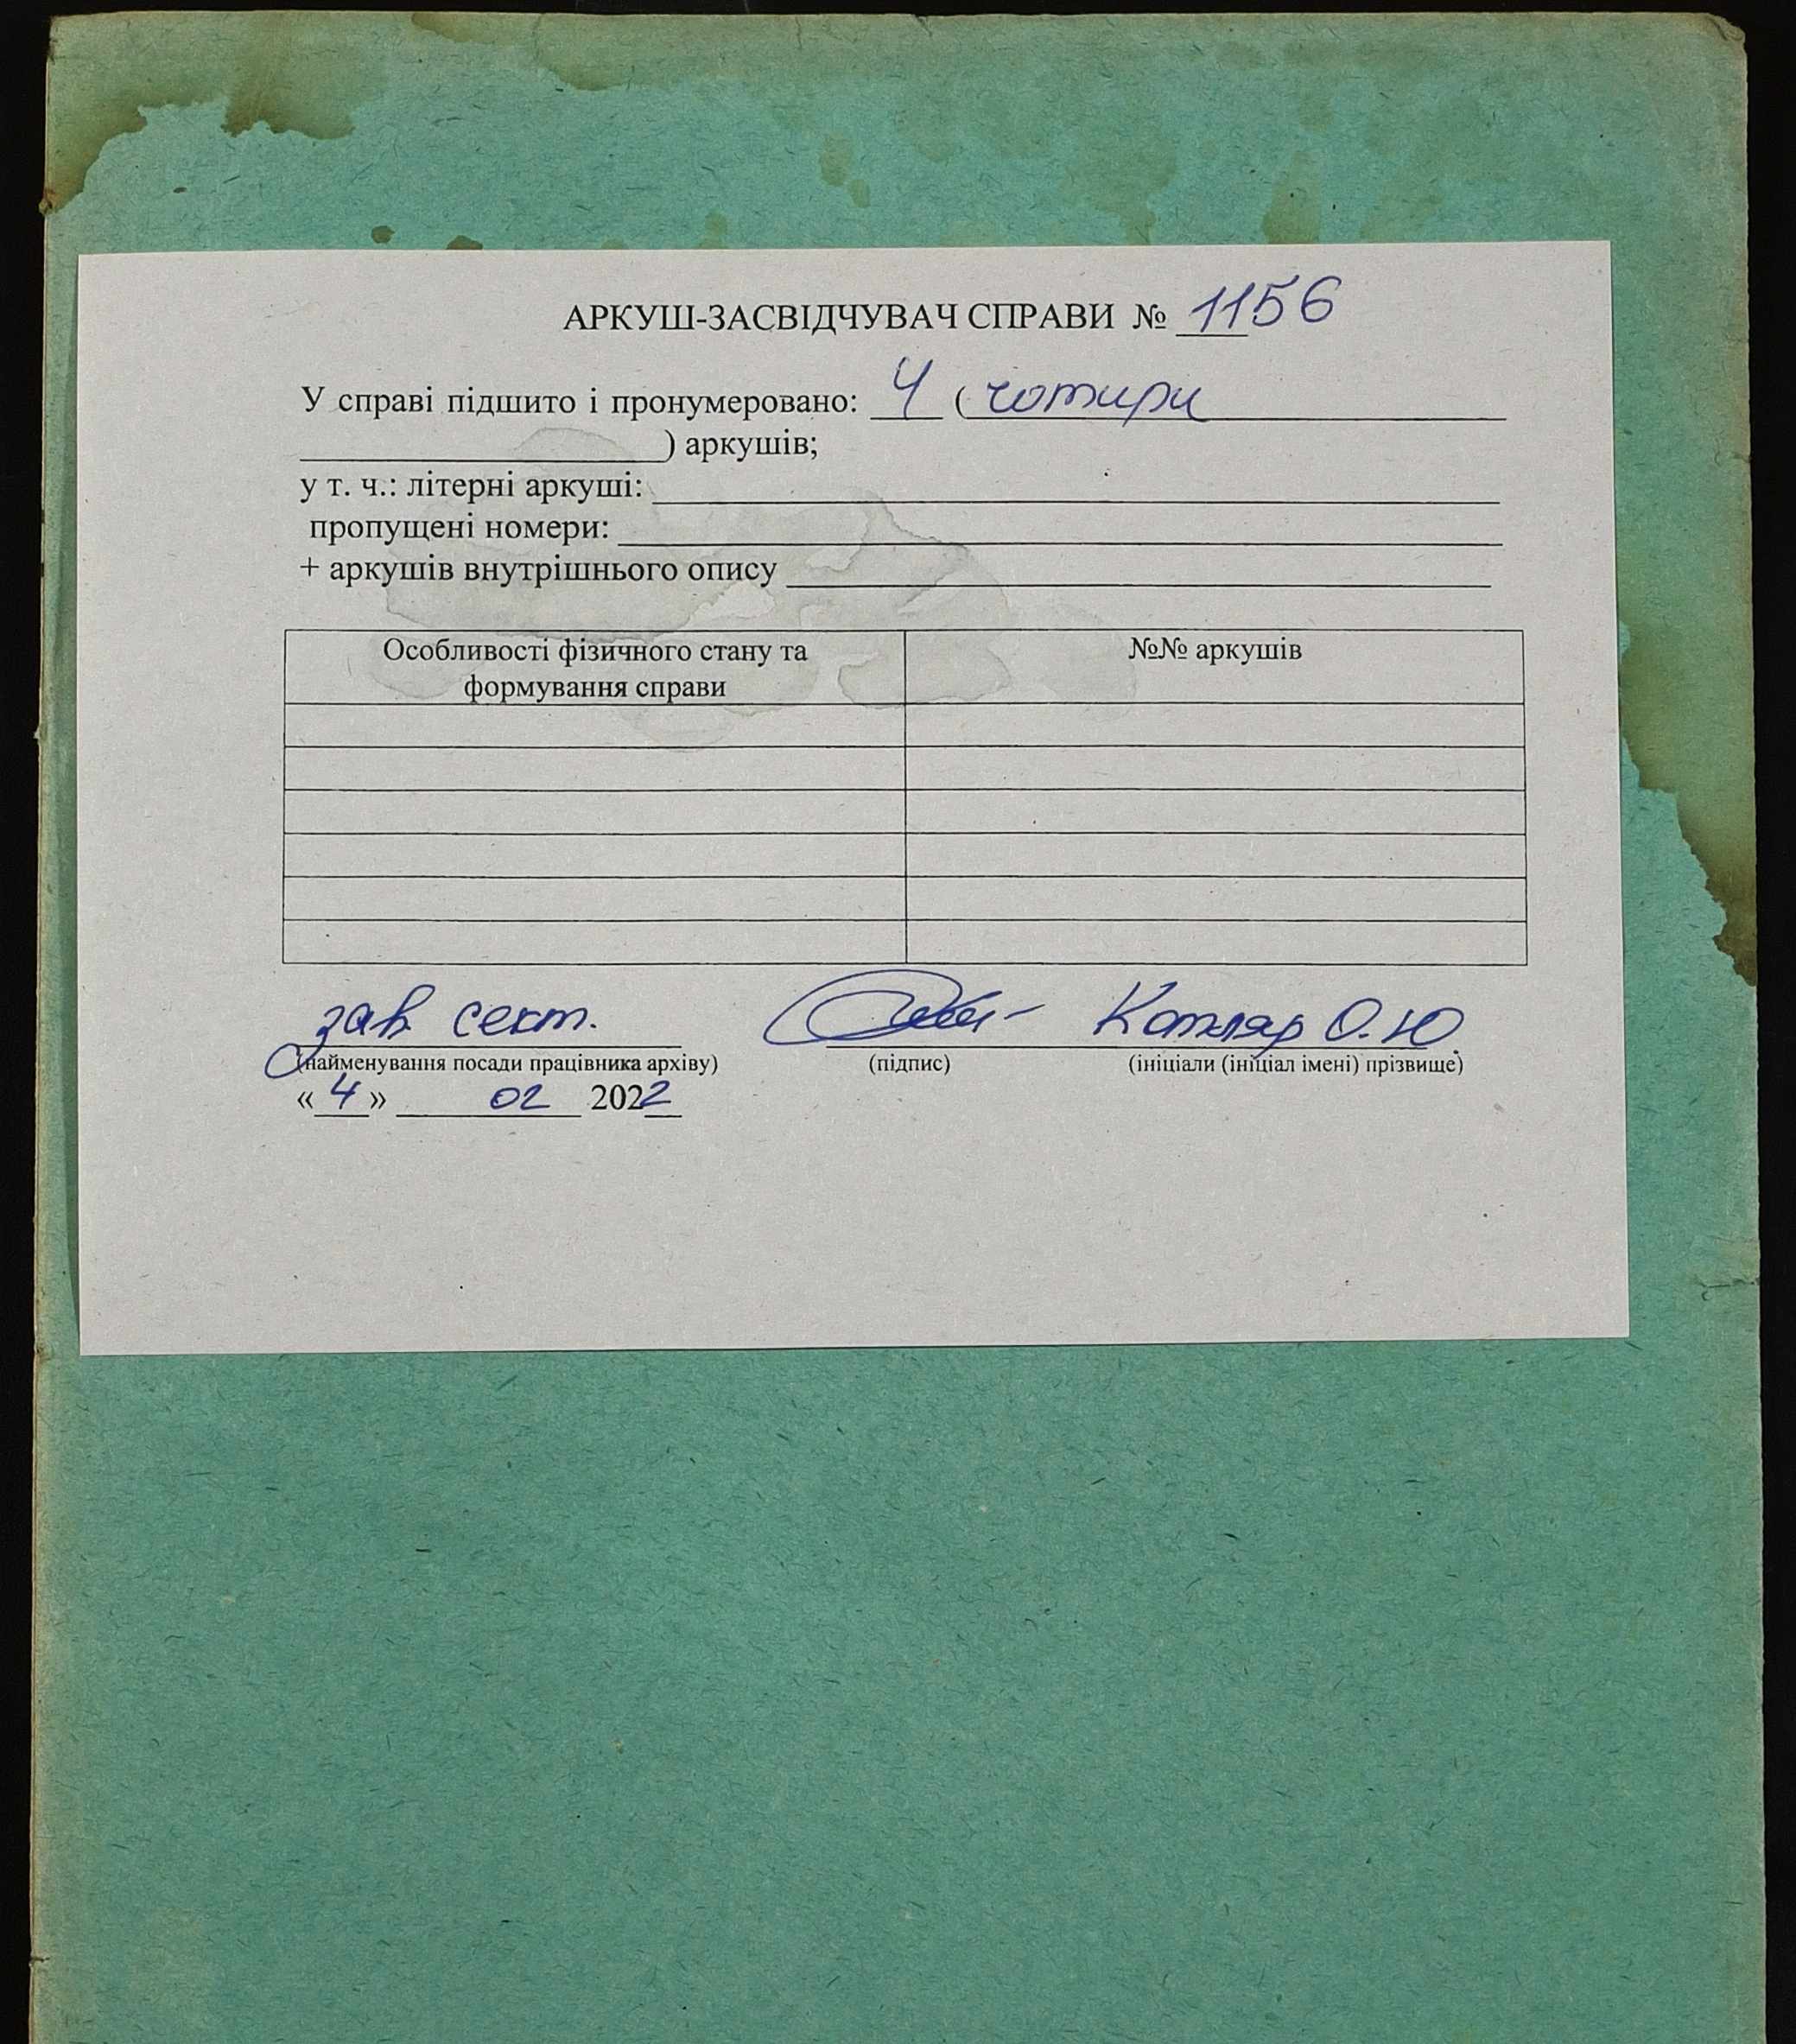 АРКУШ-ЗАСВІДЧУВАЧ СПРАВИ № 1156
У справі підшито і пронумеровано: 4 ( чотири
) аркушів;
у т. ч.: літерні аркуші:
пропущені номери:
+ аркушів внутрішнього опису
Особливості фізичного стану та формування справи
№№ аркушів
зав. сект. Котляр О.Ю.
(найменування посади працівника архіву) (підпис) (ініціали (ініціал імені) прізвище)
«4» 02 2022